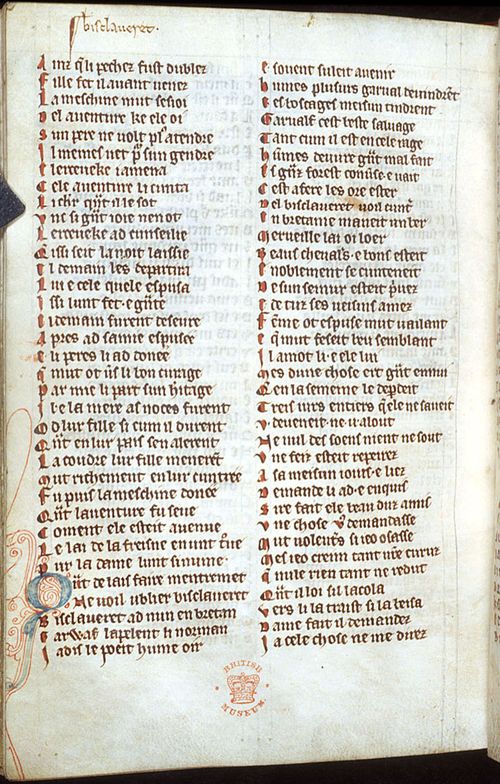 bisclaueret.
A mz q̃ li pechez fust dublez
F ille fet il auant uenez
L a meschine mut sesioi
D el auenture ke ele oi
S un pere ne uolt pl9 atendre
I l meimes uet p̃ sun gendre
E lerceueke i amena
C ele auenture li cunta
L i chr̃ q̃nt il le sot
V nc si g̃nt ioie nen ot
L erceueke ad cunseilie
Q issi seit la noit laissie
E l demain les departira
L ui e cele quele espusa
I ssi lunt fet e g̃ante
L i demain furent deseure
A pres ad samie espusee
E li peres li ad donee
Q̃ mut ot u̾s li bon curage
P ar mie li part sun h̾itage
I l e la mere as noces furent
O d lur fille si cum il durent
Q̃nt en lur pais sen alerent
L a coudre lur fille menerẽt
M ut richement en lur cuntree
F u puis la meschine donee
Q̃nt lauenture fu seue
C oment ele esteit auenue
L e lai de la freisne en unt t̾ue
P ur la dame lunt si nume
Q ũt de lais faire mentremet
N e uoil ublier bisclaueret
B isclaueret ad nun en bretan
G arwaf lapelent li norman
I adis le poeit hume oir
E souent suleit auenir
H umes plusurs garual deuindrẽt
E es boscages meisun tindrent
G arualf cest beste saluage
T ant cum il est en cele rage
H ũmes deuure g̃nt mal fait
E s g̃nz forest conuse e uait
C est afere les ore ester
D el bisclaueret uoil cunt̾
E n bretaine maneit un ber
M erueille lai oi loer
B eaus cheualr̃s e bons esteit
E noblement se cunteneit
D e sun seinur esteit priuez
E de tuz ses ueisins amez
F ẽme ot espuse mut uailant
E q̃ mut feseit beu semblant
I l amot li e ele lui
M es dune chose ert g̃nt ennui
Q̃ en la semeine le ꝑdeit
T reis iurs entiers q̃ ele ne saueit
V deueneit ne u alout
N e nul des soens nient ne sout
V ne feiz esteit repeirez
A sa meisun ioius e liez
D emande li ad e enquis
S ire fait ele beau duz amis
V ne chose v9 demandasse
M ut uolent̾s si ieo osasse
M es ieo creim tant uo̾e curuz
Q̃ nule rien tant ne redut
Q̃nt il loi si lacola
V ers li la traist si la beisa
D ame fait il demandez
I a cele chose ne me direz
BRITISH MUSEUM